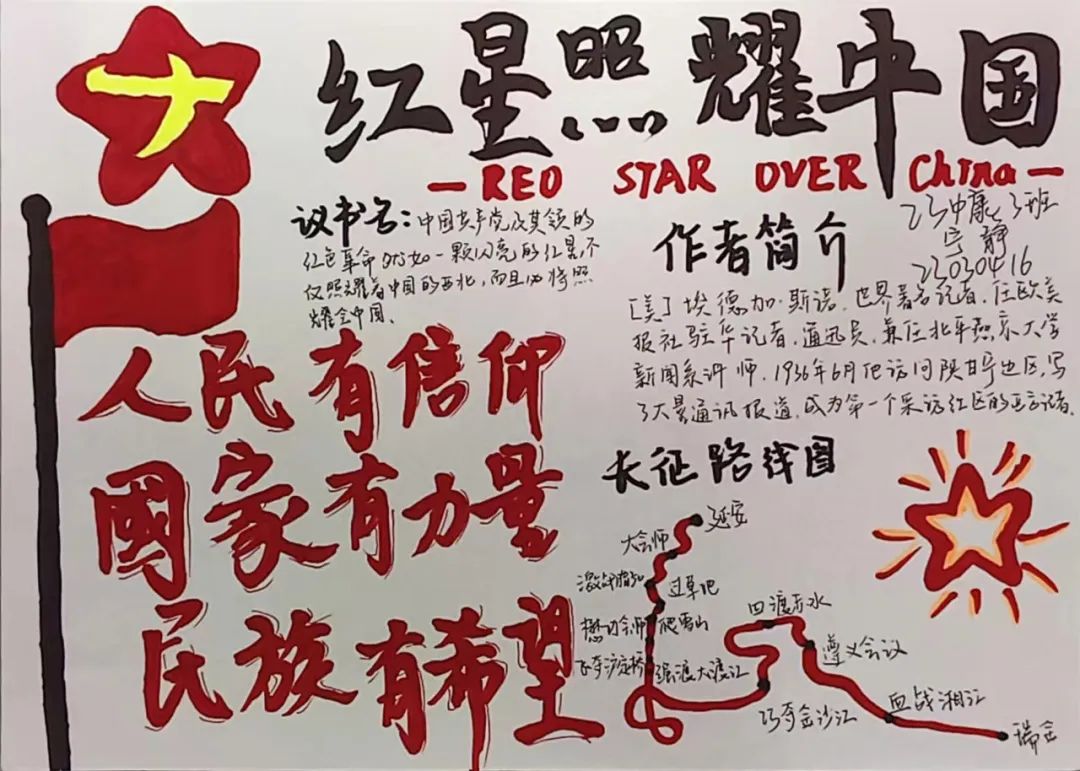 红星照耀中国
RED STAR OVER China
23中康3班
宁静
23030416
议书名：中国共产党及其领的
红色革命的如一颗闪亮的红星,不
仅照耀着中国的西北，而且必将照
耀全中国、
作者简介
［美］埃德加·斯诺．世界著名记者．任欧美
报社驻华记者．通迅员．兼任北平燕京大学
新闻系讲师．1936年6月他访问陕甘宁边区，写
了大量通讯报道．成为第一个采访红区的西方记者．
人民有信仰
國家有力量
民族有希望
长征路线图
延安
大会师
过草地
懋功会师
爬雪山
飞夺泸定桥
强渡大渡江
四渡赤水
遵义会议
巧夺金沙江
血战湘江
瑞金